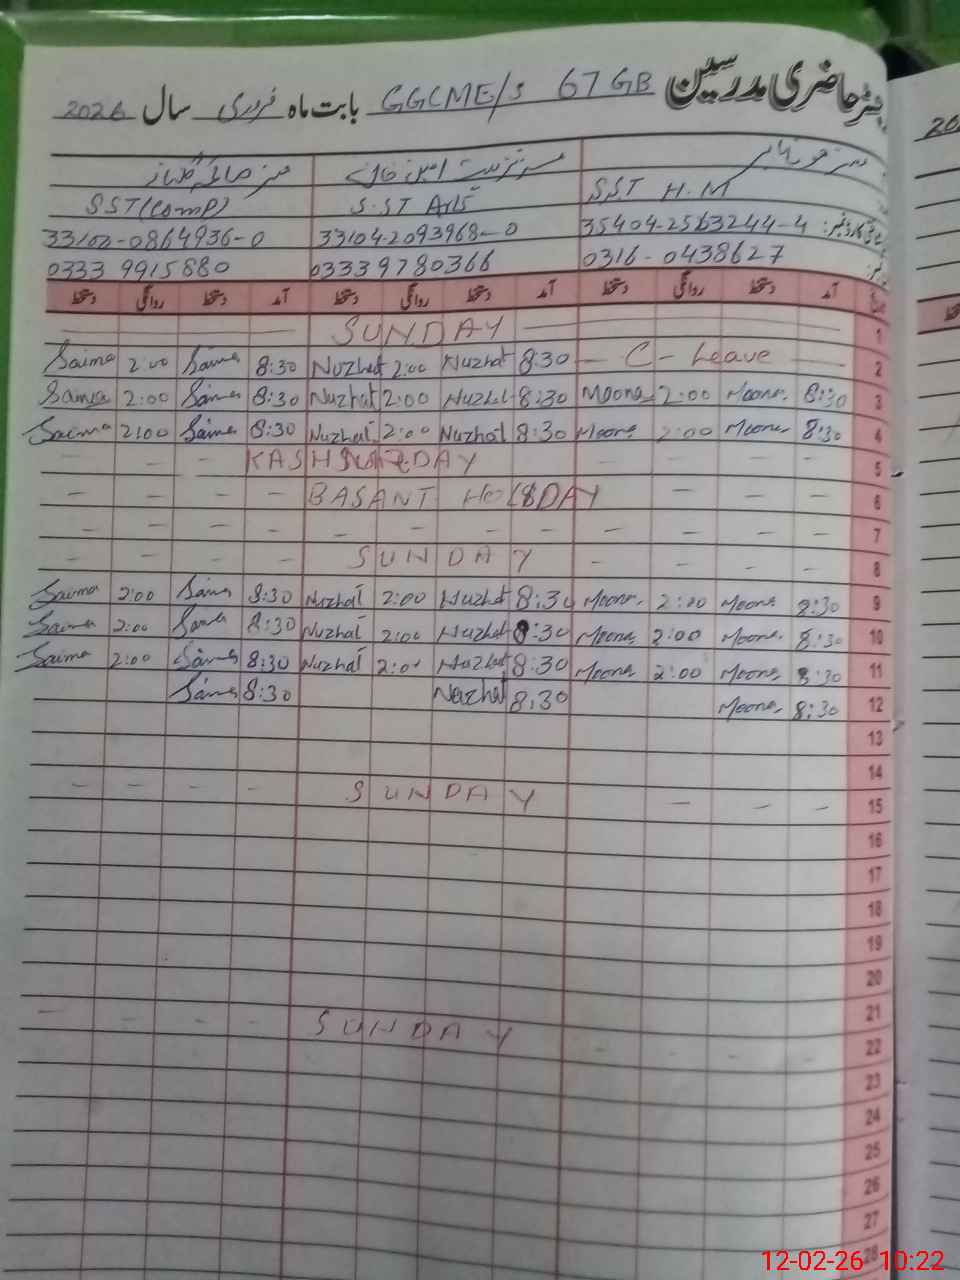 رجسٹر حاضری مدرسین GGCME/S 67 GB بابت ماہ فروری سال 2026
مسز نزہت امین خان
SST H.M S.ST Arts SST(Comp)
35404-2563244-4 33104-2093968-0 33102-0864936-0
0316-0438627 03339780366 0333 9915880
تاریخ آمد دستخط روانگی دستخط آمد دستخط روانگی دستخط آمد دستخط روانگی دستخط
SUNDAY 1
Saima 2:00 Saima 8:30 Nuzhat 2:00 Nuzhat 8:30 - C - Leave 2
Saima 2:00 Saima 8:30 Nuzhat 2:00 Nuzhat 8:30 Moona 2:00 Moona 8:30 3
Saima 2:00 Saima 8:30 Nuzhat 2:00 Nuzhat 8:30 Moona 2:00 Moona 8:30 4
- - - KASHMIR DAY - - - - 5
- - - BASANT HOLIDAY - - - 6
- - - - - - - - - - - - 7
- - - - SUNDAY - - - - 8
Saima 2:00 Saima 8:30 Nuzhat 2:00 Nuzhat 8:30 Moona 2:00 Moona 8:30 9
Saima 2:00 Saima 8:30 Nuzhat 2:00 Nuzhat 8:30 Moona 2:00 Moona 8:30 10
Saima 2:00 Saima 8:30 Nuzhat 2:00 Nuzhat 8:30 Moona 2:00 Moona 8:30 11
Saima 8:30 Nuzhat 8:30 Moona 8:30 12
13
14
- - - - SUNDAY - - - 15
16
17
18
19
20
21
- - - - SUNDAY - - - - 22
23
24
25
26
27
28
20
12-02-26 10:22